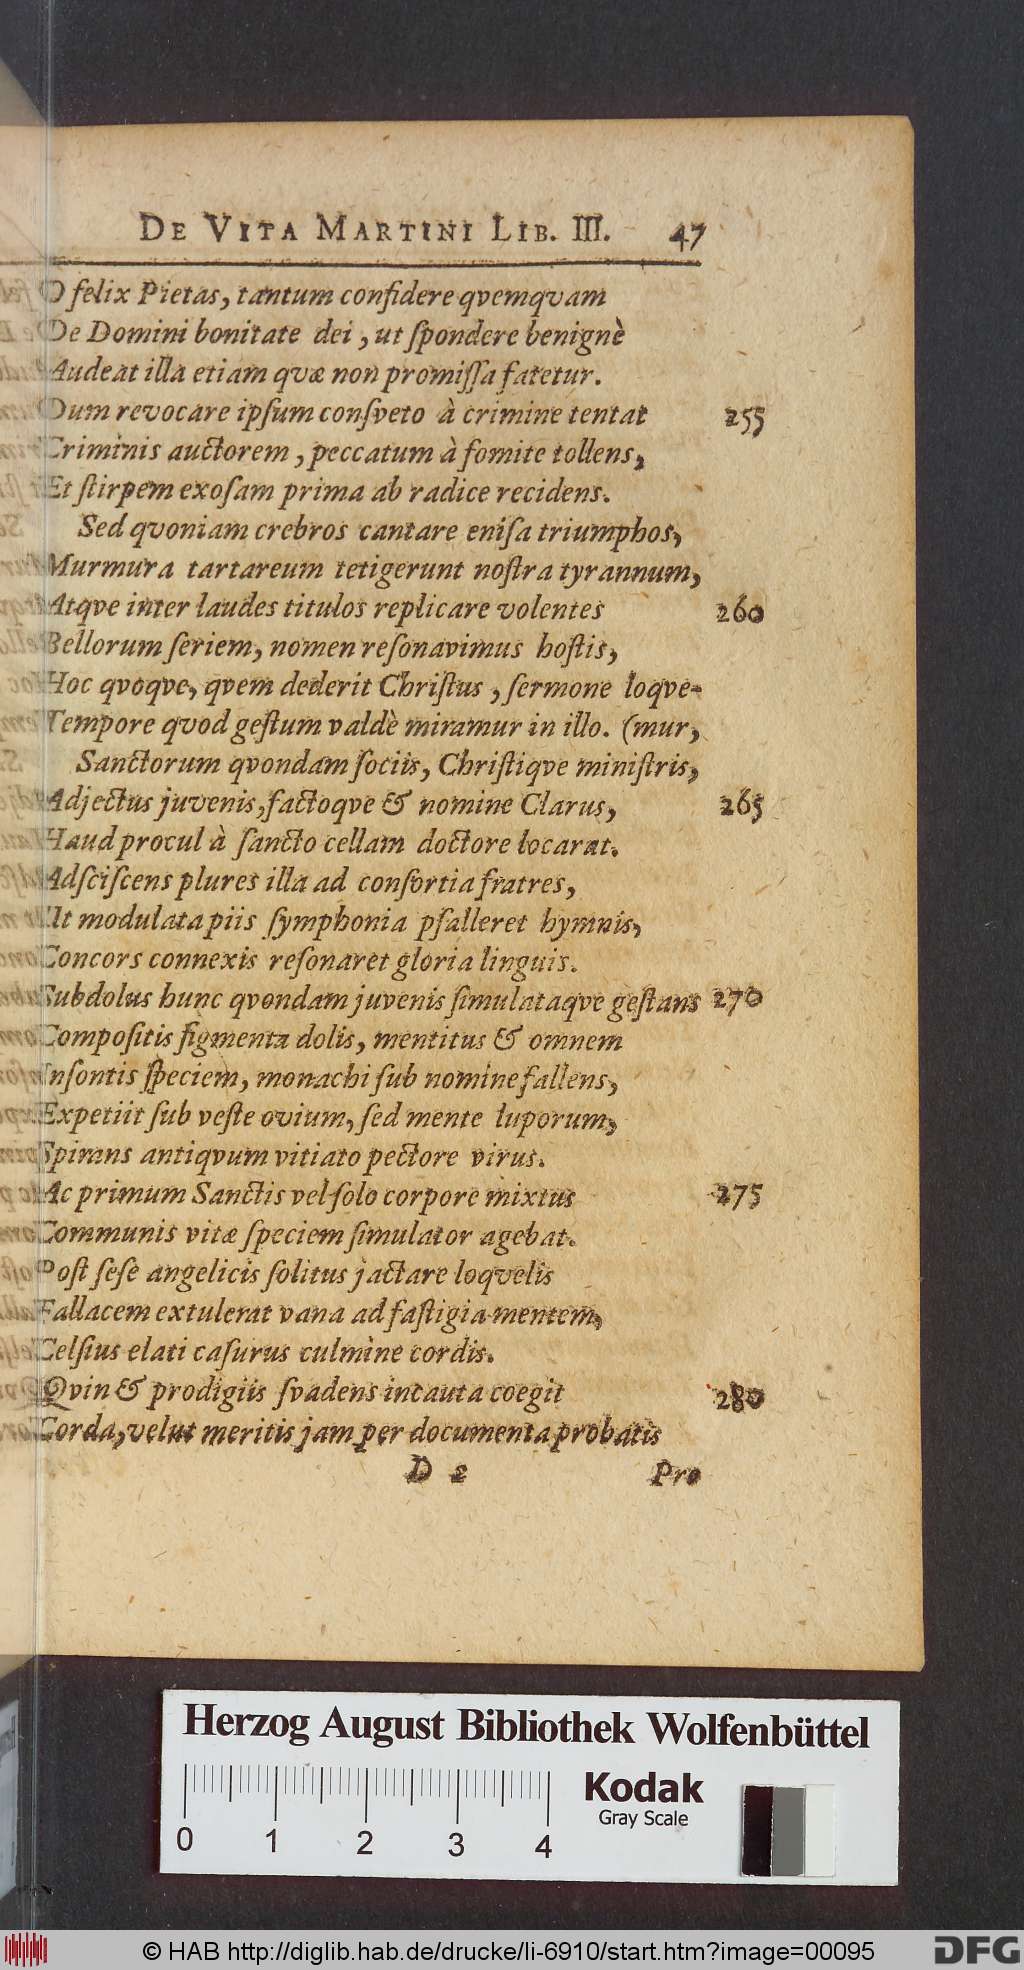 DE VITA MARTINI LIB. III. 47
O felix Pietas, tantum confidere qvemqvam
De Domini bonitate dei, ut ſpondere benignè
Audeat illa etiam qvæ non promiſſa fatetur.
Dum revocare ipſum conſveto à crimine tentat 255
Criminis auctorem, peccatum à fomite tollens,
Et ſtirpem exoſam prima ab radice recidens.
Sed qvoniam crebros cantare eniſa triumphos,
Murmura tartareum tetigerunt noſtra tyrannum,
Atqve inter laudes titulos replicare volentes 260
Bellorum ſeriem, nomen reſonavimus hoſtis,
Hoc qvoqve, qvem dederit Chriſtus, ſermone loqve-
Tempore qvod geſtum valdè miramur in illo. (mur,
Sanctorum qvondam ſociis, Chriſtiqve miniſtris,
Adjectus juvenis, factoqve & nomine Clarus, 265
Haud procul à ſancto cellam doctore locarat.
Adſciſcens plures illa ad conſortia fratres,
Ut modulata piis ſymphonia pſalleret hymnis,
Concors connexis reſonaret gloria linguis.
Subdolus hunc qvondam juvenis ſimulataqve geſtans 270
Compoſitis figmenta dolis, mentitus & omnem
Inſontis ſpeciem, monachi ſub nomine fallens,
Expetiit ſub veſte ovium, ſed mente luporum,
Spirans antiqvum vitiato pectore virus.
Ac primum Sanctis vel ſolo corpore mixtus 275
Communis vitæ ſpeciem ſimulator agebat.
Poſt ſeſe angelicis ſolitus jactare loqvelis
Fallacem extulerat vana ad faſtigia mentem,
Celſius elati caſurus culmine cordis.
Qvin & prodigiis ſvadens incauta coegit 280
Corda, velut meritis jam per documenta probatis
D 2 Pro
Herzog August Bibliothek Wolfenbüttel
Kodak
Gray Scale
0 1 2 3 4
© HAB http://diglib.hab.de/drucke/li-6910/start.htm?image=00095
DFG